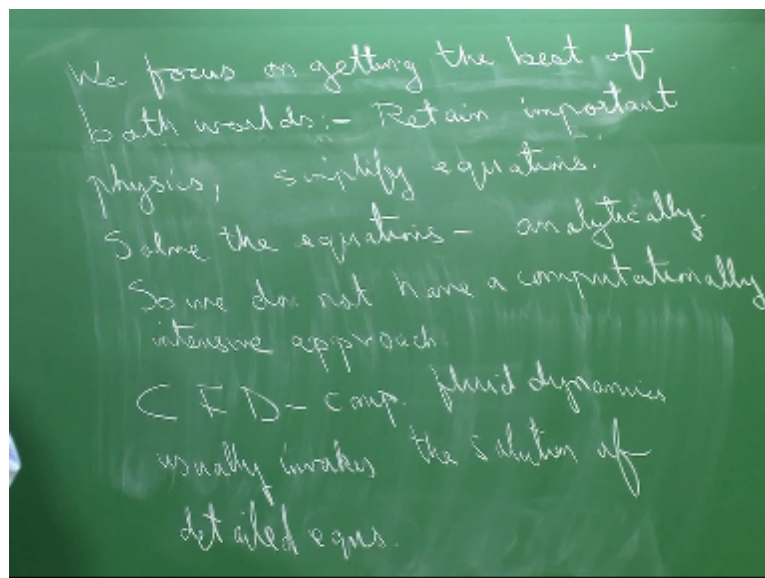 We focus on getting the best of
both worlds:- Retain important
physics, simplify equations.
Solve the equations - analytically.
So we do not have a computationally
intensive approach.
CFD - comp. fluid dynamics
usually invokes the solution of
detailed eqns.